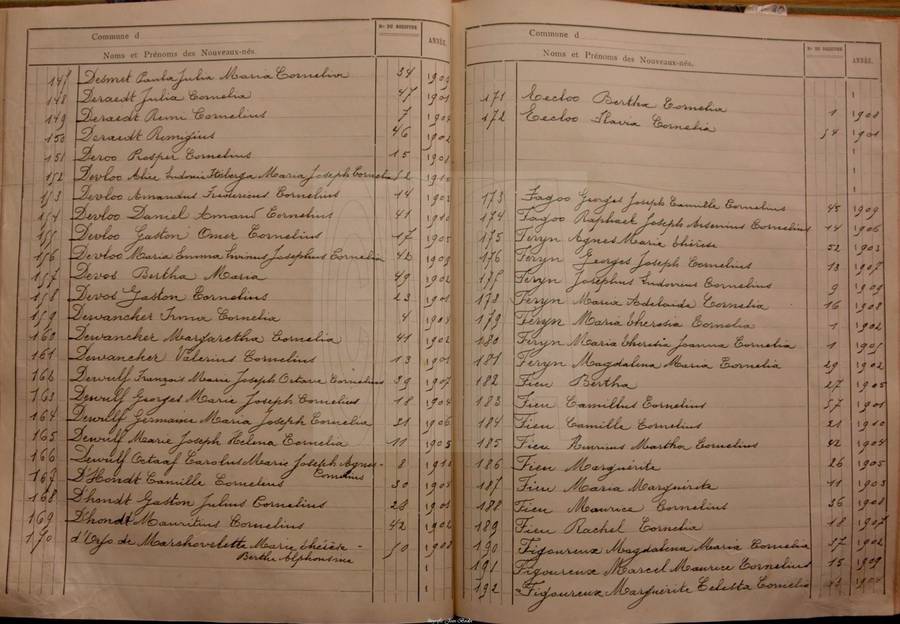 Commune d
Nos DU REGISTRE
ANNÉE.
Noms et Prénoms des Nouveaux-nés.
147 Desmet Paula Julia Maria Cornelia 34 1909
148 Deraedt Julia Cornelia 47 1901
149 Deraedt Remi Cornelius 7 1904
150 Deraedt Remigius 46 1902
151 Deroo Prosper Cornelius 15 1901
152 Devloo Alice Maria Joseph Cornelia 52 1910
153 Devloo Amandus Fredericus Cornelius 14 1902
154 Devloo Daniel Amand Cornelius 41 1910
155 Devloo Gaston Omer Cornelius 17 1905
156 Devloo Maria Emma Josephus Cornelia 42 1908
157 Devos Bertha Maria 49 1902
158 Devos Gaston Cornelius 23 1901
159 Dewancker Irma Cornelia 4 1904
160 Dewancker Margaretha Cornelia 41 1902
161 Dewancker Valerius Cornelius 13 1901
162 Dewulf François Marie Joseph Octave Cornelius 39 1907
163 Dewulf Georges Marie Joseph Cornelius 18 1904
164 Dewulf Germaine Maria Joseph Cornelia 21 1906
165 Dewulf Marie Joseph Helena Cornelia 11 1903
166 Dewulf Octaaf Carolus Marie Joseph Agnes- 8 1910
Cornelius
167 D'Hondt Camille Cornelius 30 1903
168 D'hondt Gaston Julius Cornelius 28 1901
169 D'hondt Mauritius Cornelius 42 1902
170 d'Udo de Marie thérèse- 50 1908
Berthe Alphonsine
Commune d
Nos DU REGISTRE
ANNÉE.
Noms et Prénoms des Nouveaux-nés.
171 Eecloo Bertha Cornelia 1 1908
172 Eecloo Flavia Cornelia 54 1901
173 Fagoo Georges Joseph Camille Cornelius 45 1909
174 Fagoo Raphael Joseph Arsenius Cornelius 14 1906
175 Feryn Agnes Marie thérèse 52 1903
176 Feryn Georges Joseph Cornelius 13 1907
177 Feryn Josephus Ludovicus Cornelius 9 1909
178 Feryn Maria Adelaide Cornelia 16 1908
179 Feryn Maria theresia Cornelia 1 1902
180 Feryn Maria theresia Joanna Cornelia 1 1901
181 Feryn Magdalena Maria Cornelia 29 1902
182 Fieu Bertha 27 1905
183 Fieu Camillus Cornelius 57 1901
184 Fieu Camille Cornelius 21 1910
185 Fieu Martha Cornelius 42 1904
186 Fieu Marguerite 26 1905
187 Fieu Maria Marguerite 11 1903
188 Fieu Maurice Cornelius 36 1908
189 Fieu Rachel Cornelia 18 1907
190 Figoureux Magdalena Maria Cornelia 37 1902
191 Figoureux Marcel Maurice Cornelius 15 1909
192 Figoureux Marguerite Celesta Cornelia 1904